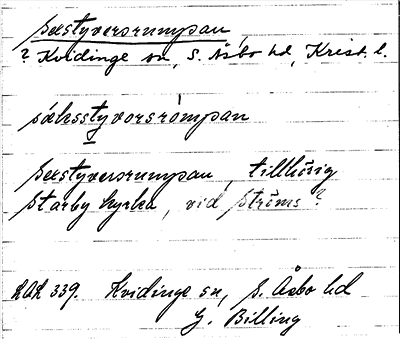 sextyversrumpan
? Kvidinge sn, S. Åsbo hd, Krist. l.
säksstyvorsrompan
sextyversrumpan, tillhörig
Starby kyrka, vid Ströms?
LAL 339. Kvidinge sn, S. Åsbo hd
G. Billing